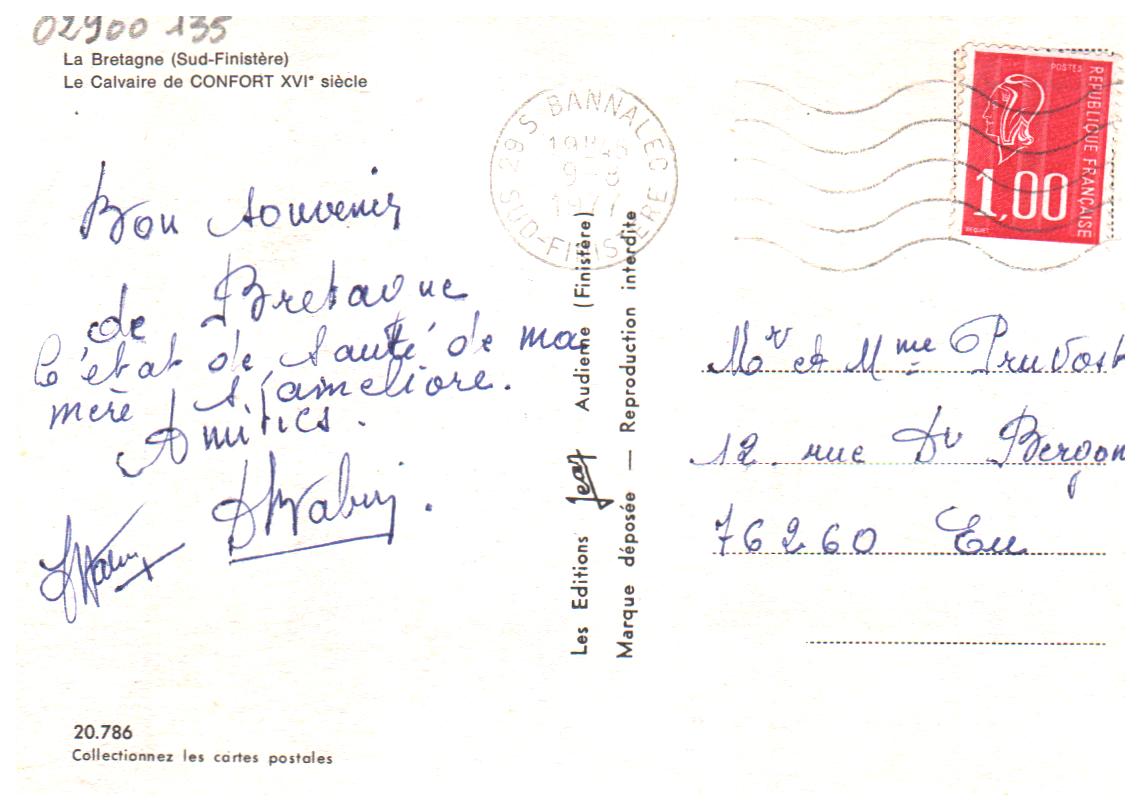 02900 135
La Bretagne (Sud-Finistère)
Le Calvaire de CONFORT XVIᵉ siècle
Bon souvenir
de Bretagne
L'état de santé de ma
mère s'ameliore.
Amitiés.
20.786
Collectionnez les cartes postales
29S BANNALEC
9-8
1977
SUD-FINISTÈRE
Les Editions Jean Audierne (Finistère)
Marque déposée — Reproduction interdite
POSTES
RÉPUBLIQUE FRANÇAISE
1,00
BEQUET
Mr et Mme Pruvost
12 rue Dr Bergon
76260 Eu